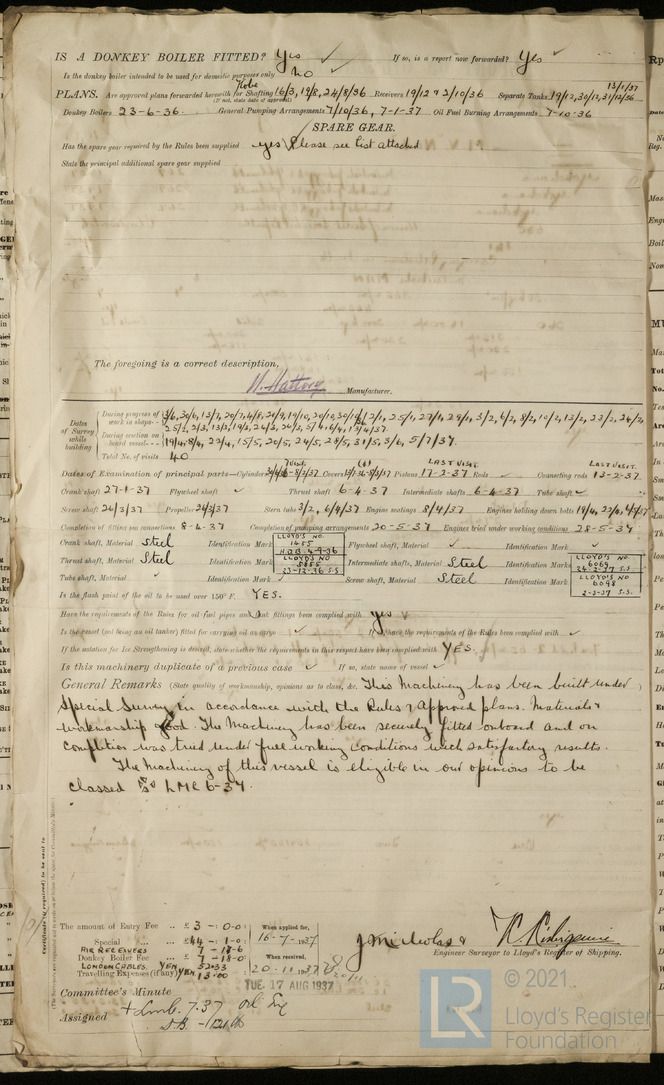 IS A DONKEY BOILER FITTED? Yes ✓ If so, is a report now forwarded? Yes
Is the donkey boiler intended to be used for domestic purposes only No ✓
Kobe 13/1/37
PLANS. Are approved plans forwarded herewith for Shafting 16/3, 19/8, 24/8/36 Receivers 19/12 & 2/10/36 Separate Tanks 19/12, 30/12, 31/12/36
(If not, state date of approval)
Donkey Boilers 23-6-36. General Pumping Arrangements 7/10/36, 7-1-37 Oil Fuel Burning Arrangements 7-10-36
SPARE GEAR.
Has the spare gear required by the Rules been supplied yes Please see list attached
State the principal additional spare gear supplied
The foregoing is a correct description,
Manufacturer.
Dates of Survey while building
During progress of work in shops - -
During erection on board vessel - - 19/4, 8/4, 22/4, 15/5, 20/5, 24/5, 28/5, 31/5, 3/6, 5/7/37.
Total No. of visits 40
LAST VISIT. LAST VISIT.
Dates of Examination of principal parts—Cylinders Covers Pistons 17-2-37 Rods ✓ Connecting rods 13-2-37
Crank shaft 27-1-37 Flywheel shaft ✓ Thrust shaft 6-4-37 Intermediate shafts 6-4-37 Tube shaft ✓
Screw shaft 24/3/37 Propeller 24/3/37 Stern tube 3/2, 6/4/37 Engine seatings 8/4/37 Engines holding down bolts 19/4, 22/4,
Completion of fitting sea connections 8-4-37 Completion of pumping arrangements 20-5-37 Engines tried under working conditions 28-5-37
Crank shaft, Material Steel Identification Mark LLOYD'S NO. 1455 H.D.B. 4-9-36 Flywheel shaft, Material ✓ Identification Mark ✓
Thrust shaft, Material Steel Identification Mark LLOYD'S NO 5855 23-12-36 S.S. Intermediate shafts, Material Steel Identification Marks LLOYD'S NO 6069 24-2-37 S.S.
Tube shaft, Material ✓ Identification Mark ✓ Screw shaft, Material Steel Identification Mark LLOYD'S NO 6098 2-3-37 S.S.
Is the flash point of the oil to be used over 150° F. YES.
Have the requirements of the Rules for oil fuel pipes and tank fittings been complied with yes
Is the vessel (not being an oil tanker) fitted for carrying oil as cargo ✓ If so, have the requirements of the Rules been complied with ✓
If the notation for Ice Strengthening is desired, state whether the requirements in this respect have been complied with YES.
Is this machinery duplicate of a previous case ✓ If so, state name of vessel ✓
General Remarks (State quality of workmanship, opinions as to class, &c. This Machinery has been built under
Special Survey in accordance with the Rules & approved plans. Materials &
workmanship good. The Machinery has been securely fitted onboard and on
completion was tried under full working conditions with satisfactory results.
The Machinery of this vessel is eligible in our opinions to be
classed LMC 6-37.
The amount of Entry Fee .. £ 3 - : 0-0 When applied for,
Special ... £44 - : 1-0 : 16-7-1937
AIR RECEIVERS 7 - 17-6
Donkey Boiler Fee ... £ 7 - 18-0 : When received,
LONDON CABLES. YEN 52.33
Travelling Expenses (if any) YEN 13.00 20-11-1937
Engineer Surveyor to Lloyd's Register of Shipping.
Committee's Minute TUE. 17 AUG 1937
Assigned + Lmb. 7.37 oil Eng
© 2021
LR Lloyd's Register
Foundation